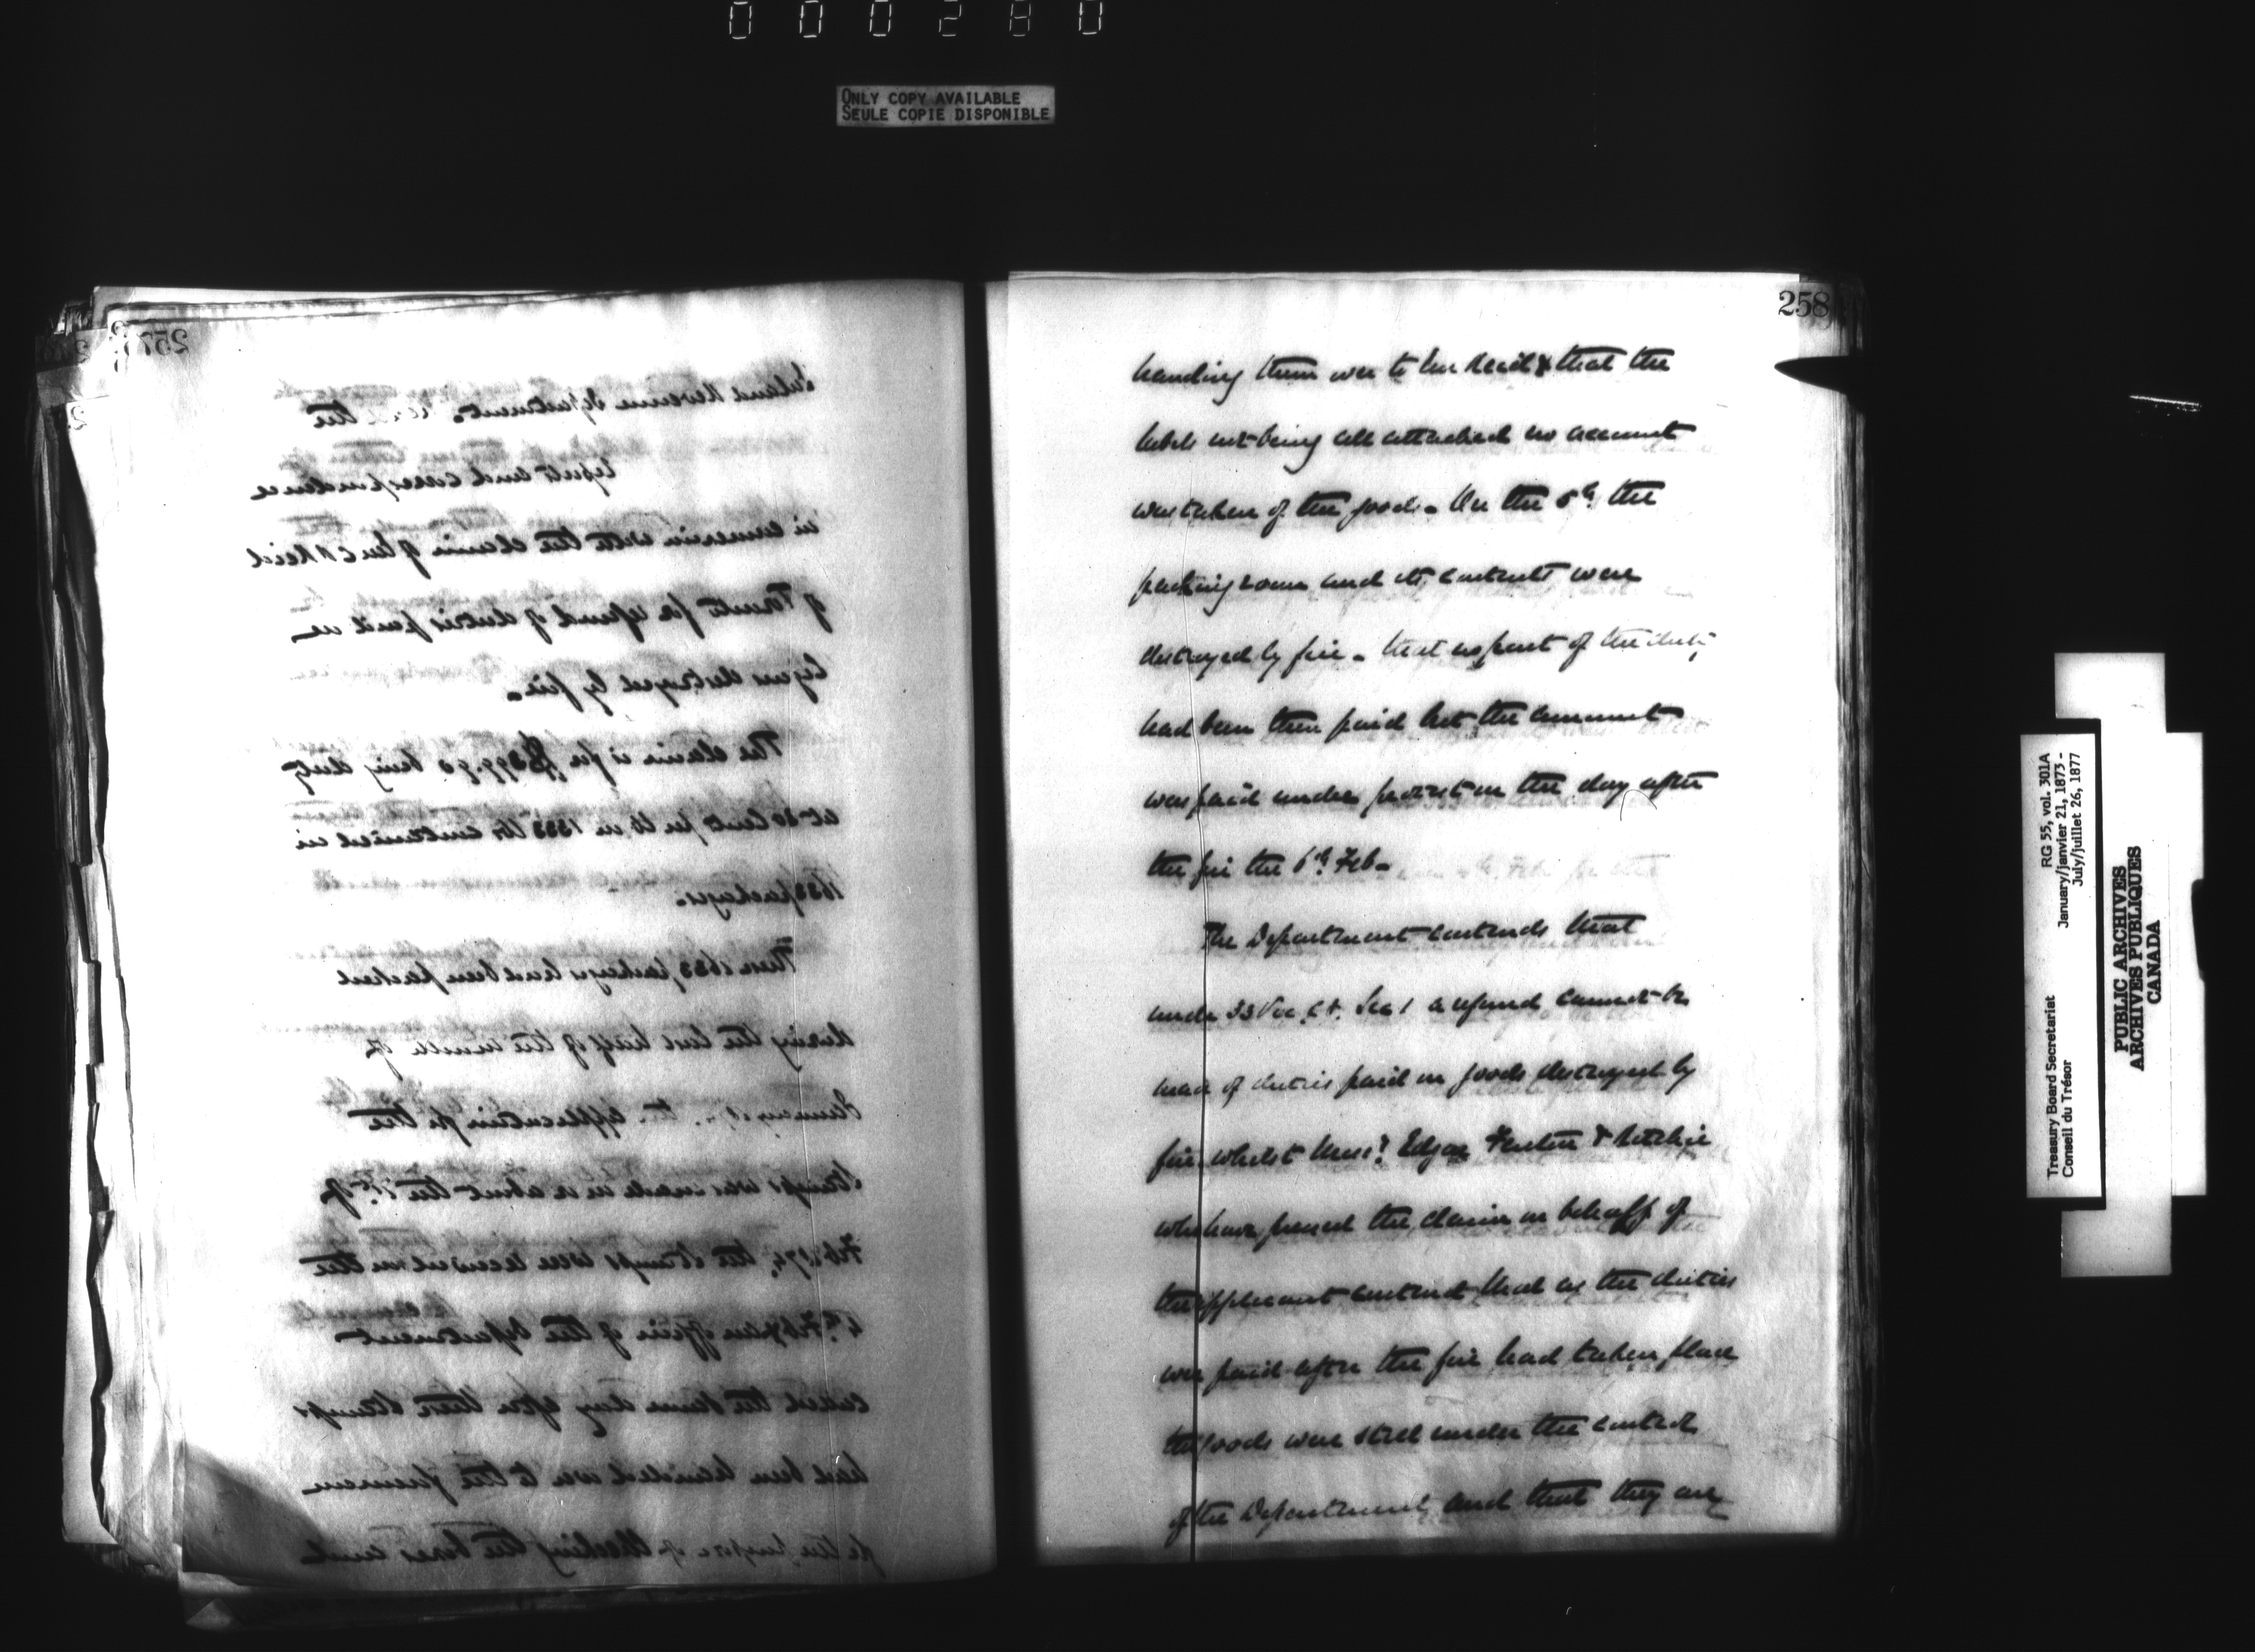 000280
ONLY COPY AVAILABLE
SEULE COPIE DISPONIBLE
257
Inland Revenue Department. the
report and correspondence
in connexion with the claim of Mr C R Reid
of Toronto for refund of duties paid on
destroyed by fire.
The claim is for being duty
at 30 cents per lb on 1333 lbs contained in
packages.
These packages had been packed
during the last half of the month of
January the application for the
stamps was made on or about the of
Feb. the stamps were received on the
4th Feb & an officer of the Department
the same day after these stamps
had been handed over to the foreman
for the purpose of checking the boxes and
258
handing them over to Mr Reid & that the
labels not being all attached no account
was taken of the goods. On the 5th the
packing room and its contents were
destroyed by fire. that no part of the duty
had been then paid but the amount
was paid under protest on the day after
the fire the 6th Feb.
The Department contends that
under 33 Vic. Sec 1 a refund cannot be
made of duties paid on goods destroyed by
fire whilst Messrs Edgar Fenton & Ritchie
who have pressed the claim on behalf of
the applicant contend that as the duties
were paid after the fire had taken place
the goods were still under the control
of the Department and that they are
Treasury Board Secretariat
Conseil du Trésor
RG 55, vol. 301A
January/janvier 21, 1873 -
July/juillet 26, 1877
PUBLIC ARCHIVES
ARCHIVES PUBLIQUES
CANADA